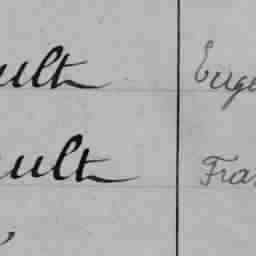 ult Euge
ault Fra